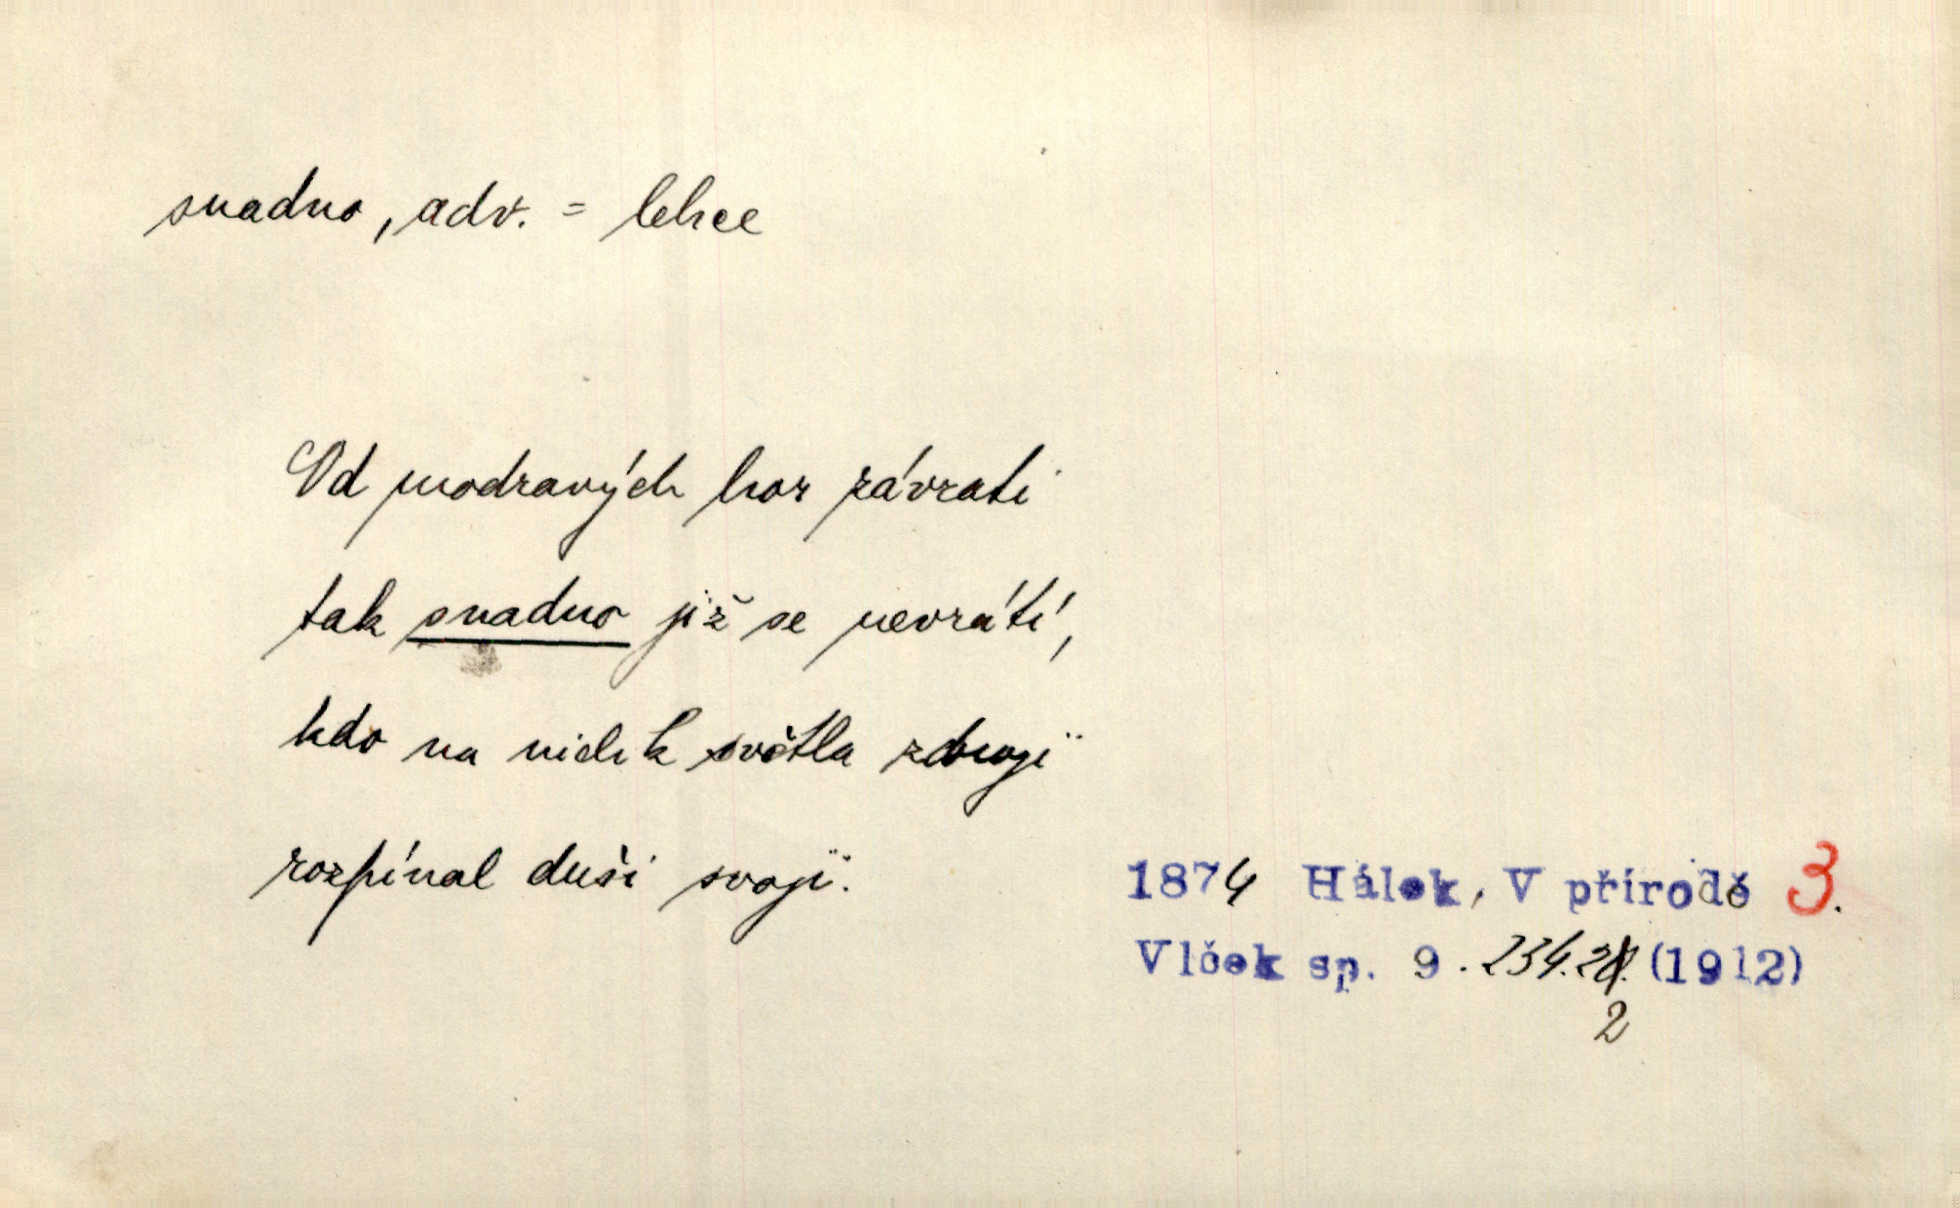 snadno, adv. = lehce
Od modravých hor závrati
tak snadno již se nevrátí,
kdo na nich k světla zdroji
rozpínal duši svoji.
1874 Hálek, V přírodě 3.
Vlček sp. 9. 234. 2 (1912)
2